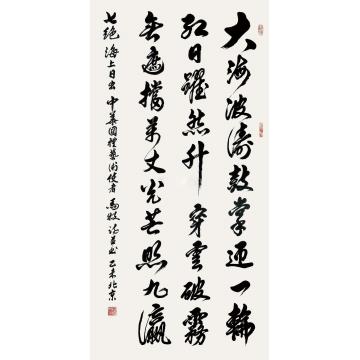 大海波涛鼓掌迎一轮
红日跃然升穿云破雾
无遮挡万丈光芒照九瀛
七绝海上日出中华国礼艺术使者马牧诗并书乙未北京